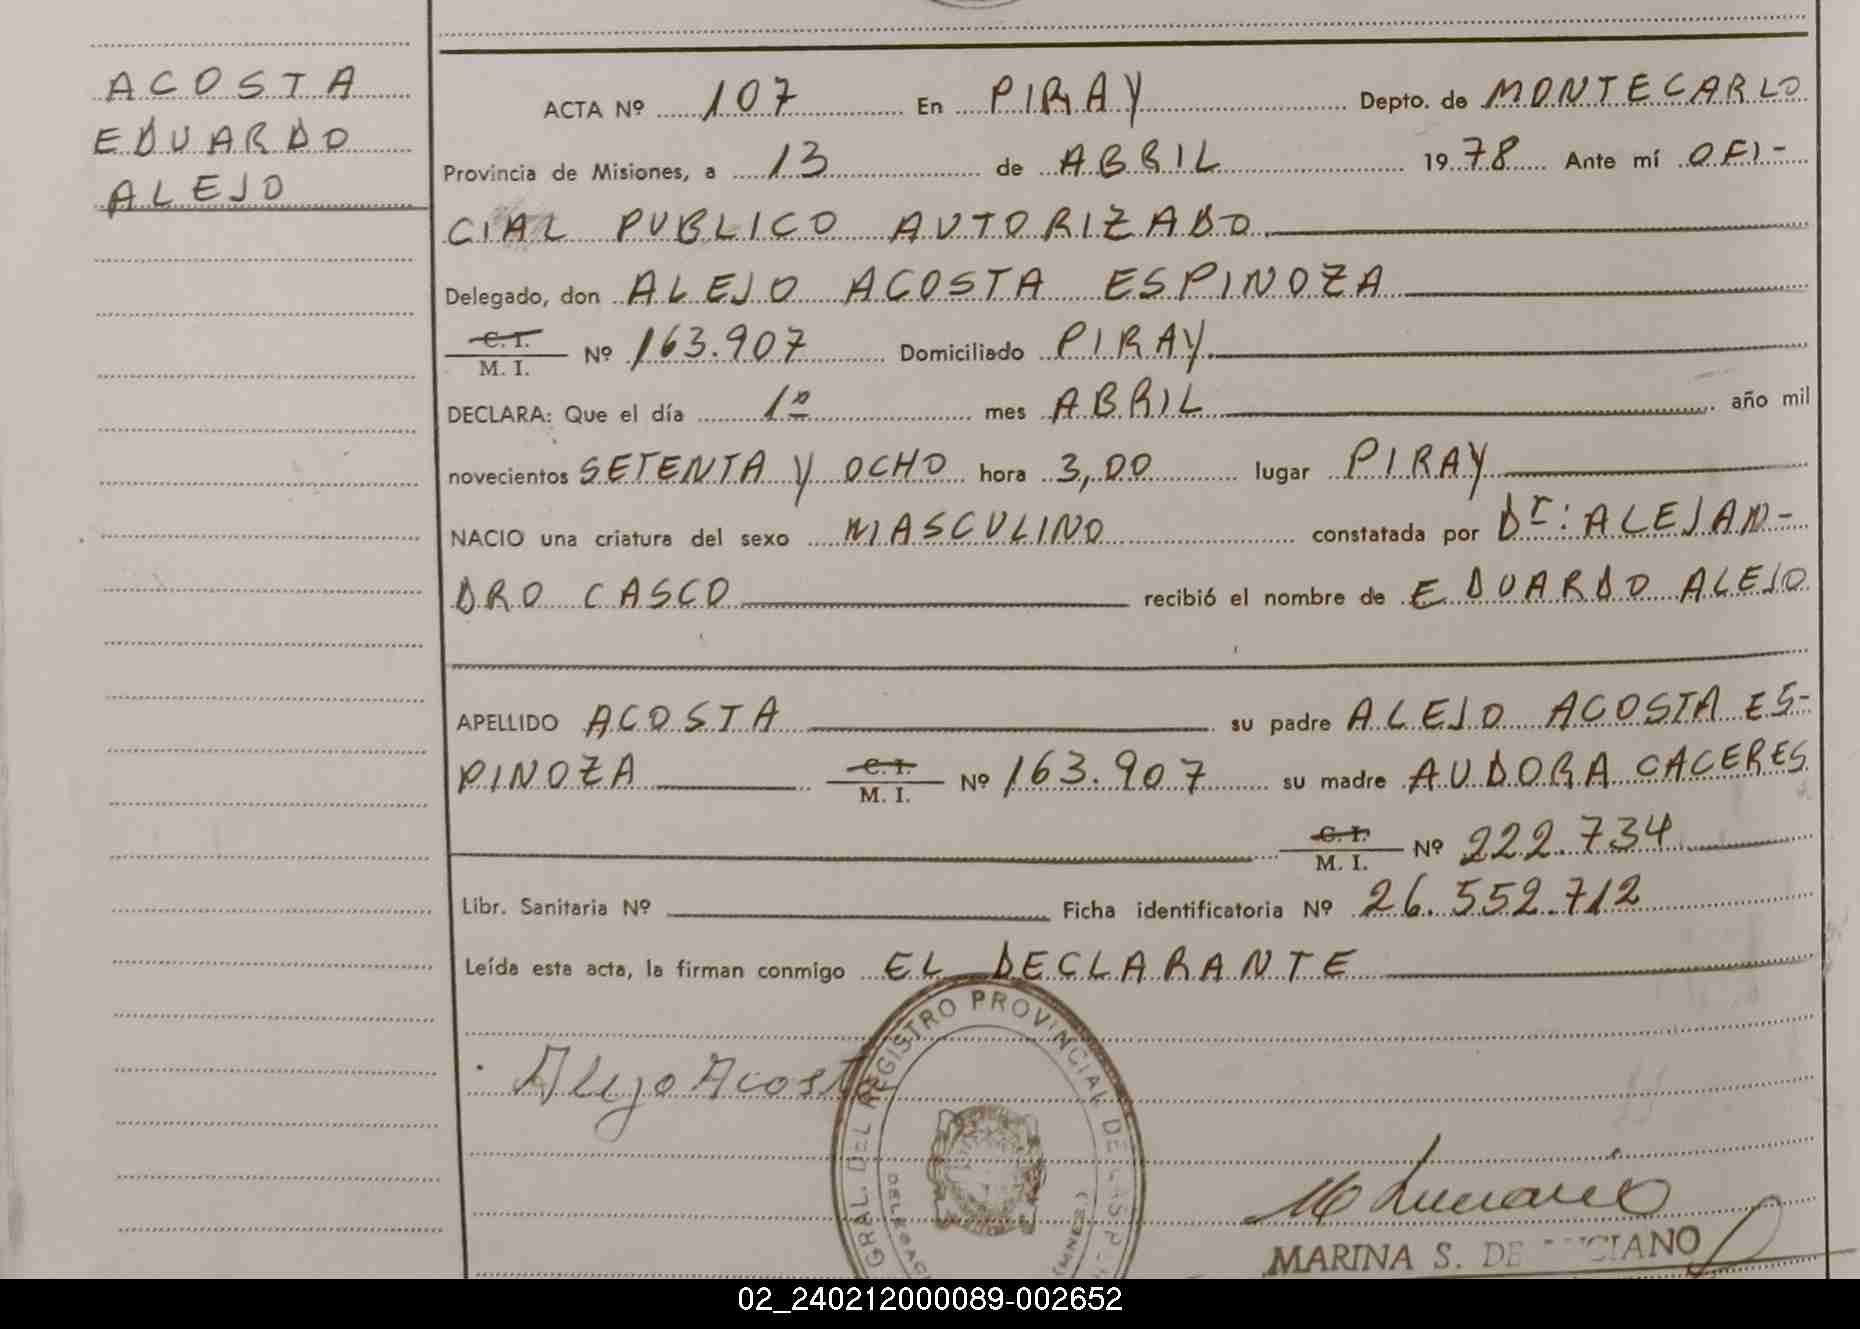 ACOSTA
EDUARDO
ALEJO
ACTA Nº 107 En PIRAY Depto. de MONTECARLO
Provincia de Misiones, a 13 de ABRIL 1978 Ante mí OFI-
CIAL PUBLICO AUTORIZADO
Delegado, don ALEJO ACOSTA ESPINOZA
C. I.
M. I. Nº 163.907 Domiciliado PIRAY
DECLARA: Que el día 1º mes ABRIL año mil
novecientos SETENTA Y OCHO hora 3,00 lugar PIRAY
NACIO una criatura del sexo MASCULINO constatada por Dr: ALEJAN-
DRO CASCO recibió el nombre de EDUARDO ALEJO
APELLIDO ACOSTA su padre ALEJO ACOSTA ES-
PINOZA C. I. M. I. Nº 163.907 su madre AUDORA CACERES
C. I. M. I. Nº 222.734
Libr. Sanitaria Nº Ficha identificatoria Nº 26.552.712
Leída esta acta, la firman conmigo EL DECLARANTE
Alejo Acosta
GRAL. DEL REGISTRO PROVINCIAL DE LAS P
M Luciano
MARINA S. DE LUCIANO
02_240212000089-002652